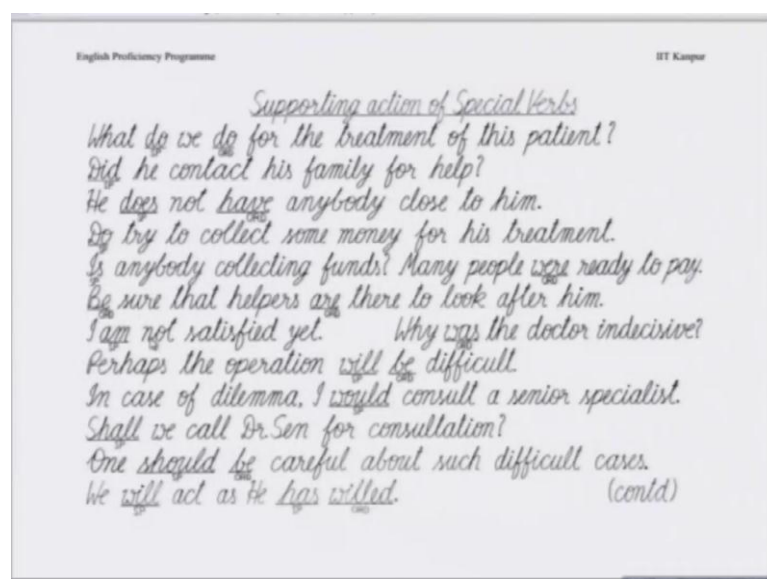 English Proficiency Programme IIT Kanpur
Supporting action of Special Verbs
What do we do for the treatment of this patient?
Did he contact his family for help?
He does not have anybody close to him.
Do try to collect some money for his treatment.
Is anybody collecting funds? Many people were ready to pay.
Be sure that helpers are there to look after him.
I am not satisfied yet. Why was the doctor indecisive?
Perhaps the operation will be difficult.
In case of dilemma, I would consult a senior specialist.
Shall we call Dr. Sen for consultation?
One should be careful about such difficult cases.
We will act as He has willed. (contd)